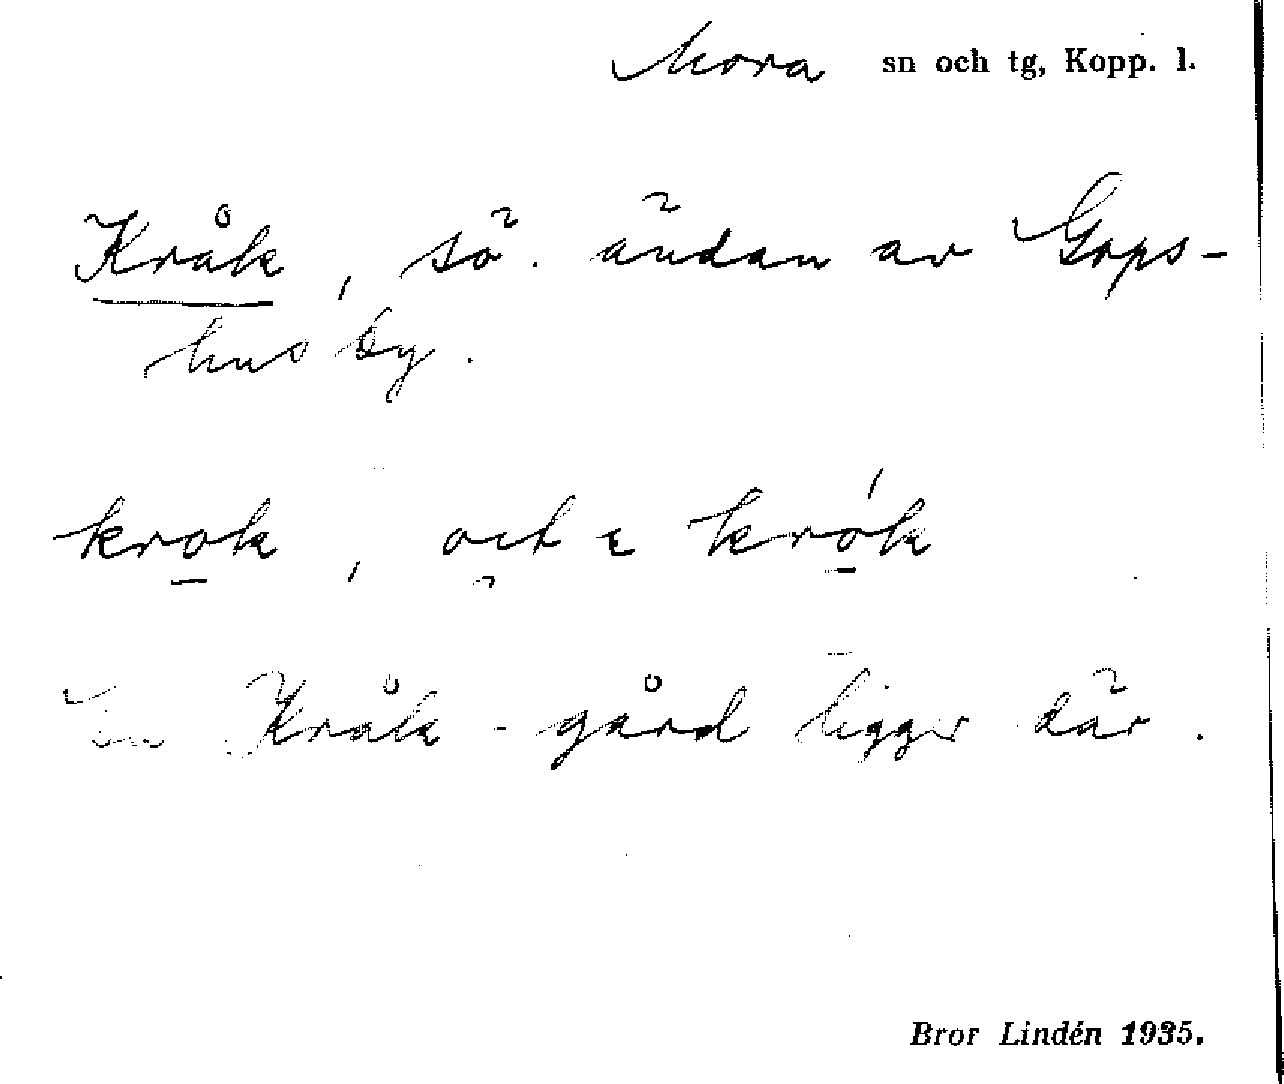 Mora sn och tg, Kopp. l.
Kråk, sö. ändan av Gops-
hus by.
krok, och i krók
En Kråk-gård ligger där.
Bror Lindén 1935.